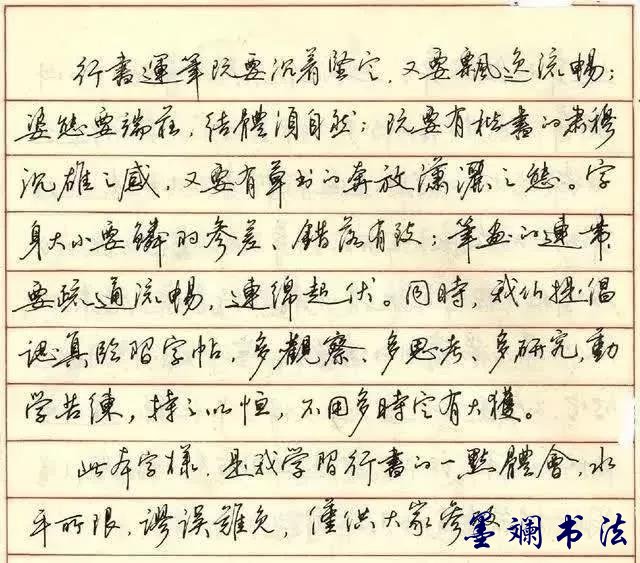 行書運筆既要沉着堅定，又要飄逸流暢；
姿態要端莊，結體須自然；既要有楷書的肅穆
沉雄之感，又要有草书的奔放瀟灑之態。字
身大小要鱗的参差、錯落有致；筆画的連带，
要疏通流暢，連綿起伏。同時，我们提倡
認真临習字帖，多觀察、多思考、多研究，勤
学苦練，持之以恒，不用多時定有大獲。
此本字樣，是我学習行書的一點體會，水
平所限，謬误難免，僅供大家参考
墨斓书法